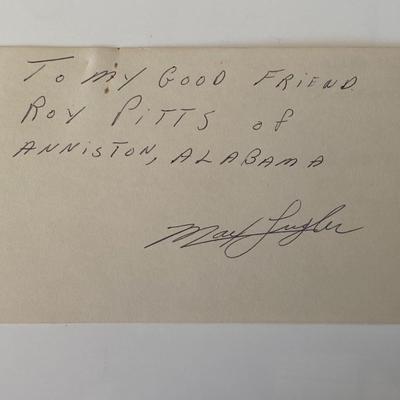 To my GOOD FRIEND
ROY PITTS of
ANNISTON, ALABAMA